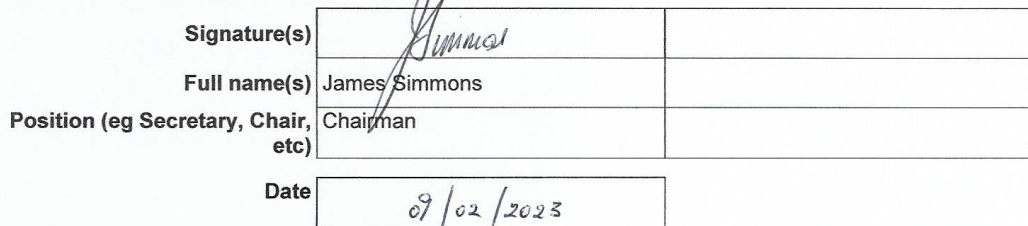 Signature(s)
Full name(s) James Simmons
Position (eg Secretary, Chair, Chairman
etc)
Date 09/02/2023